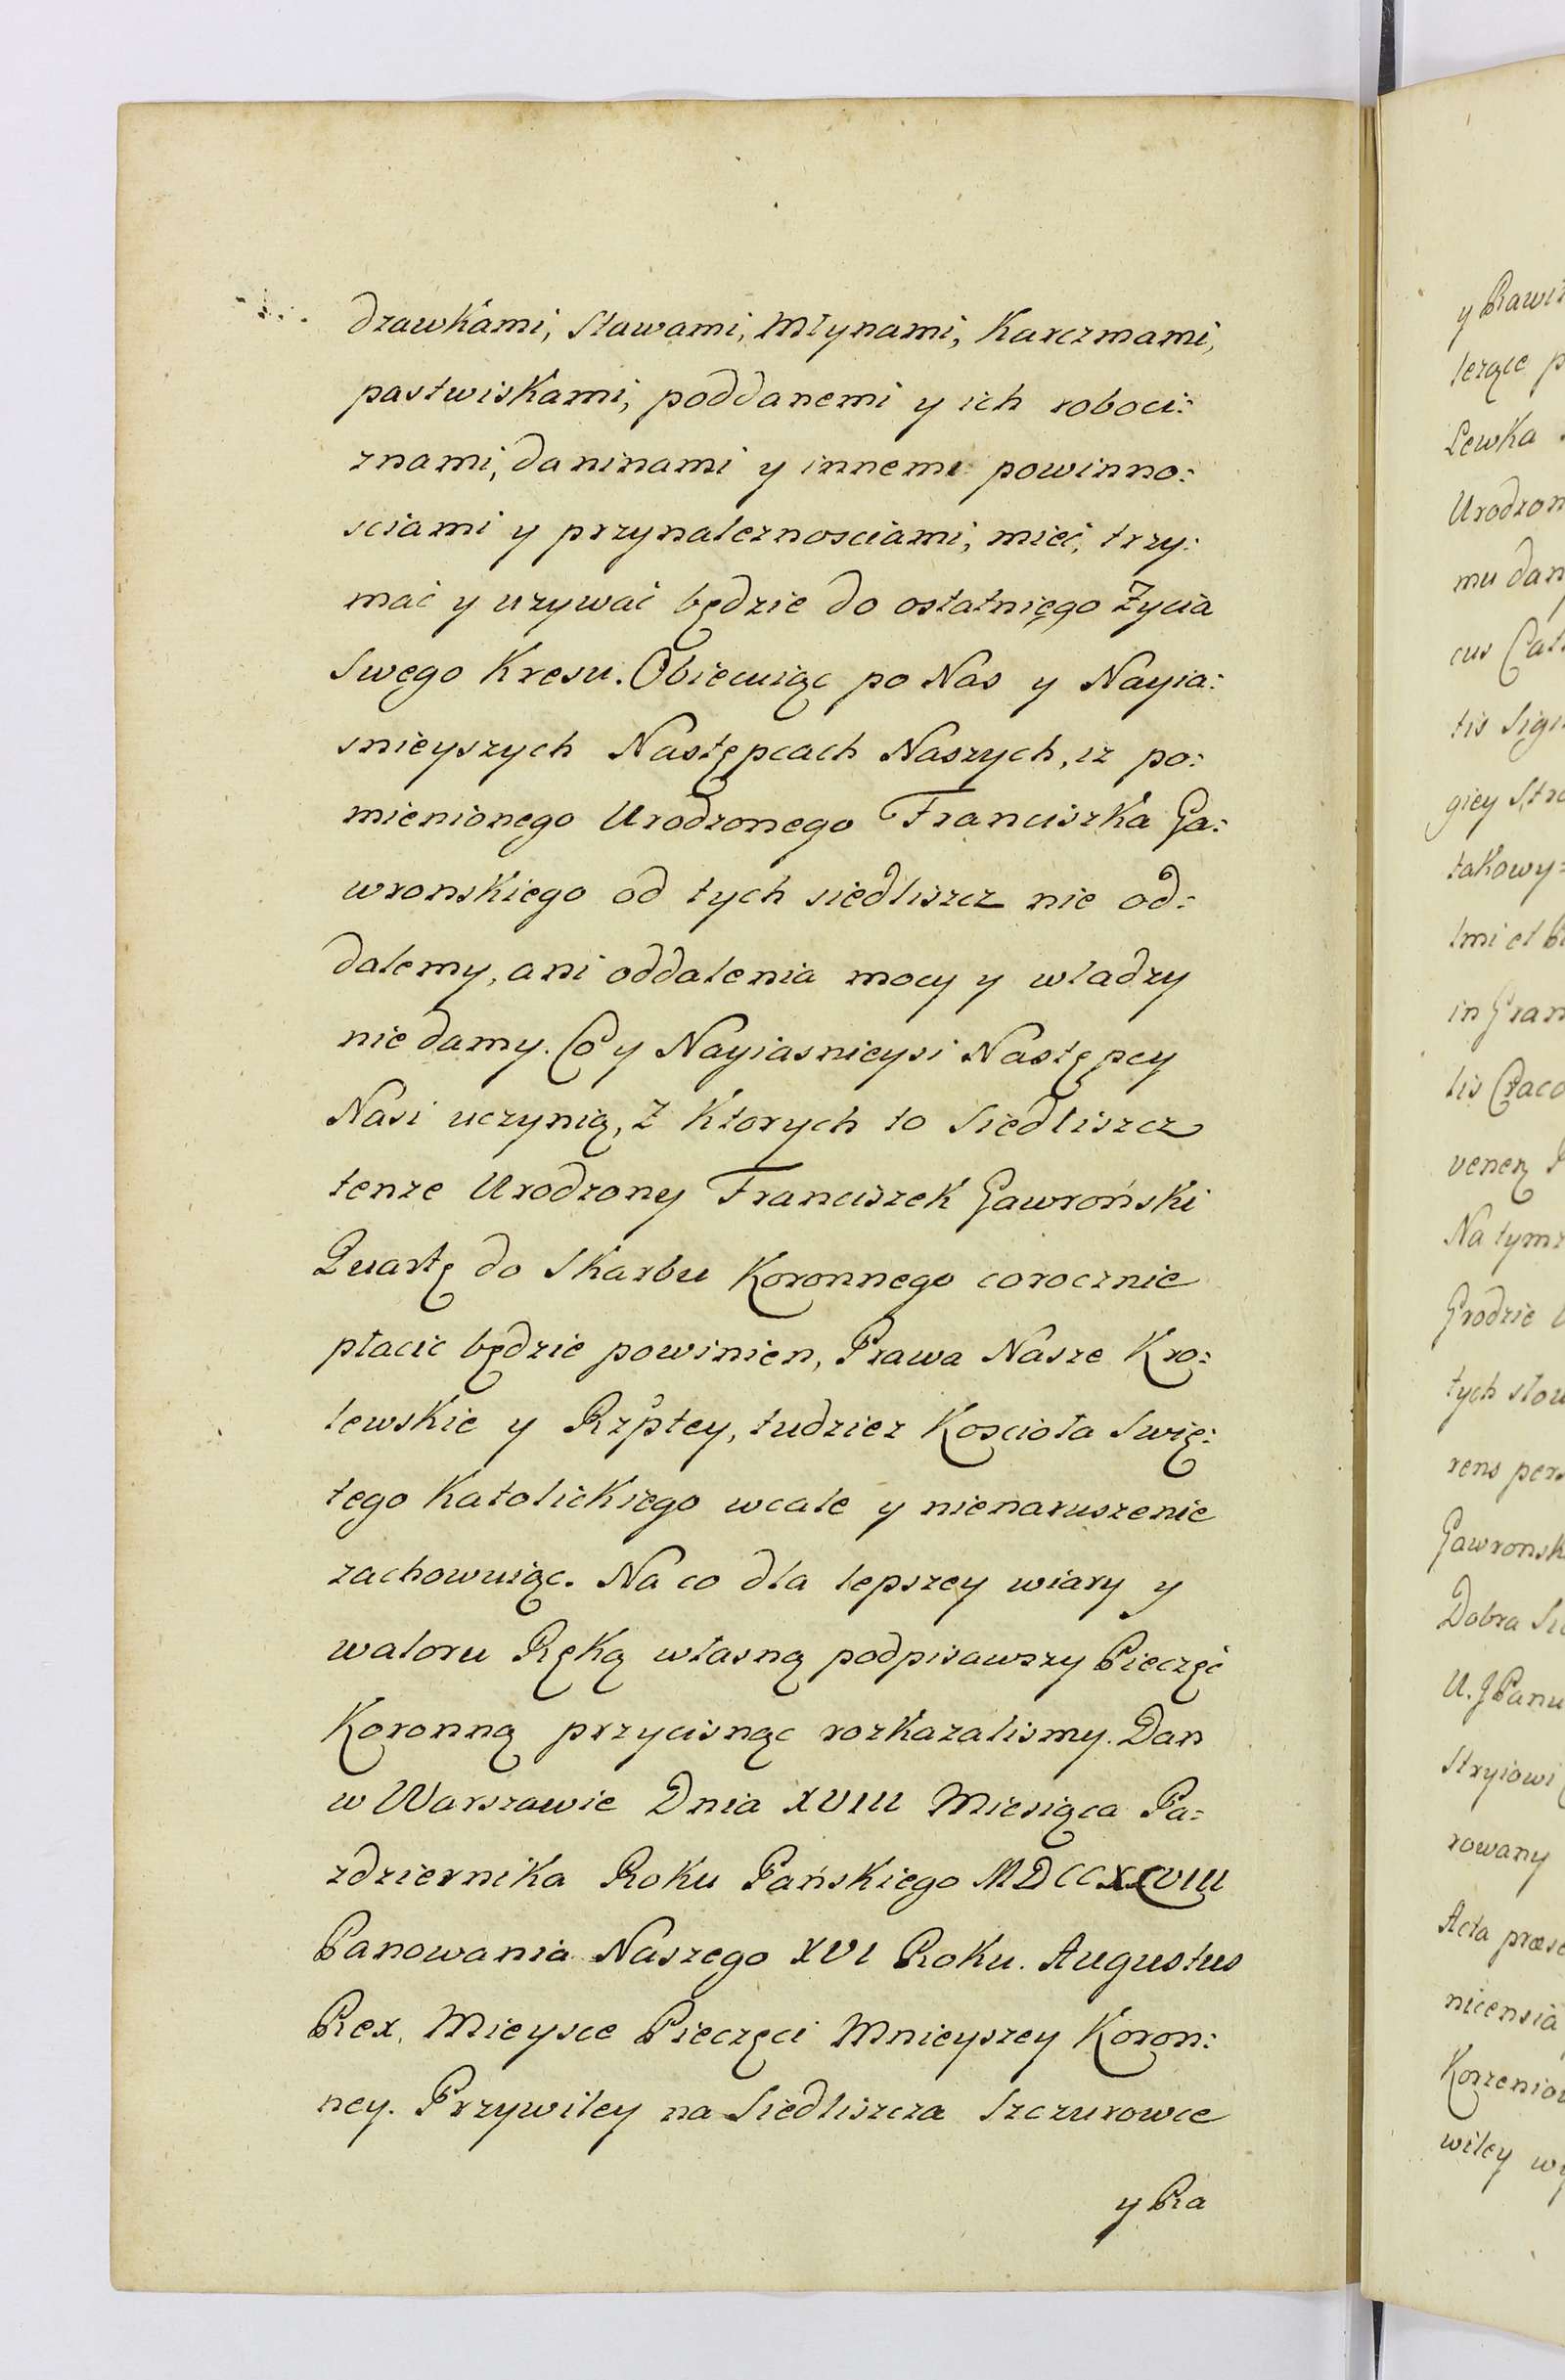 drawkami, Stawami, Młynami, Karczmami,
pastwiskami, poddanemi y ich roboci:
znami, daninami y innemi powinno:
sciami y przynaleznosciami, mieć, trzy:
mać y uzywać będzie do ostatniego Zycia
Swego Kresu. Obiecuiąc po Nas y Nayia:
snieyszych Następcach Naszych, iz po:
mienionego Urodzonego Franciszka Ga:
wronskiego od tych siedliszcz nie od:
dalemy, ani oddalenia mocy y władzy
nie damy. Co y Nayiasnieysi Następcy
Nasi uczynią, Z Ktorych to Siedliszcz
tenze Urodzony Franciszek Gawroński
Quartę do Skarbu Koronnego corocznie
płacić będzie powinien, Prawa Nasze Kro:
lewskie y Rzptey, tudziez Koscioła Swię:
tego Katolickiego wcale y nienaruszenie
zachowuiąc. Na co dla lepszey wiary y
waloru Ręką własną podpisawszy Pieczęć
Koronną przycisnąc rozkazalismy. Dan
w Warszawie Dnia XVIII Miesiąca Pa:
zdziernika Roku Pańskiego MDCCXXVIII
Panowania Naszego XVI Roku. Augustus
Rex. Mieysce Pieczęci Mnieyszey Koron:
ney. Przywiley na Siedliszcza Szczurowce
y Ra
y Rawi
lezące
Lewka
Urodzon
mu dan
cus
tis Sig
giey
takowy:
in Gran
lis
Na tym
Grodzie
tych
rens per
Gawronsk
Dobra
U. J Panu
Stryiowi
rowany
Acta præs
nicensia
Korzenio
wiley